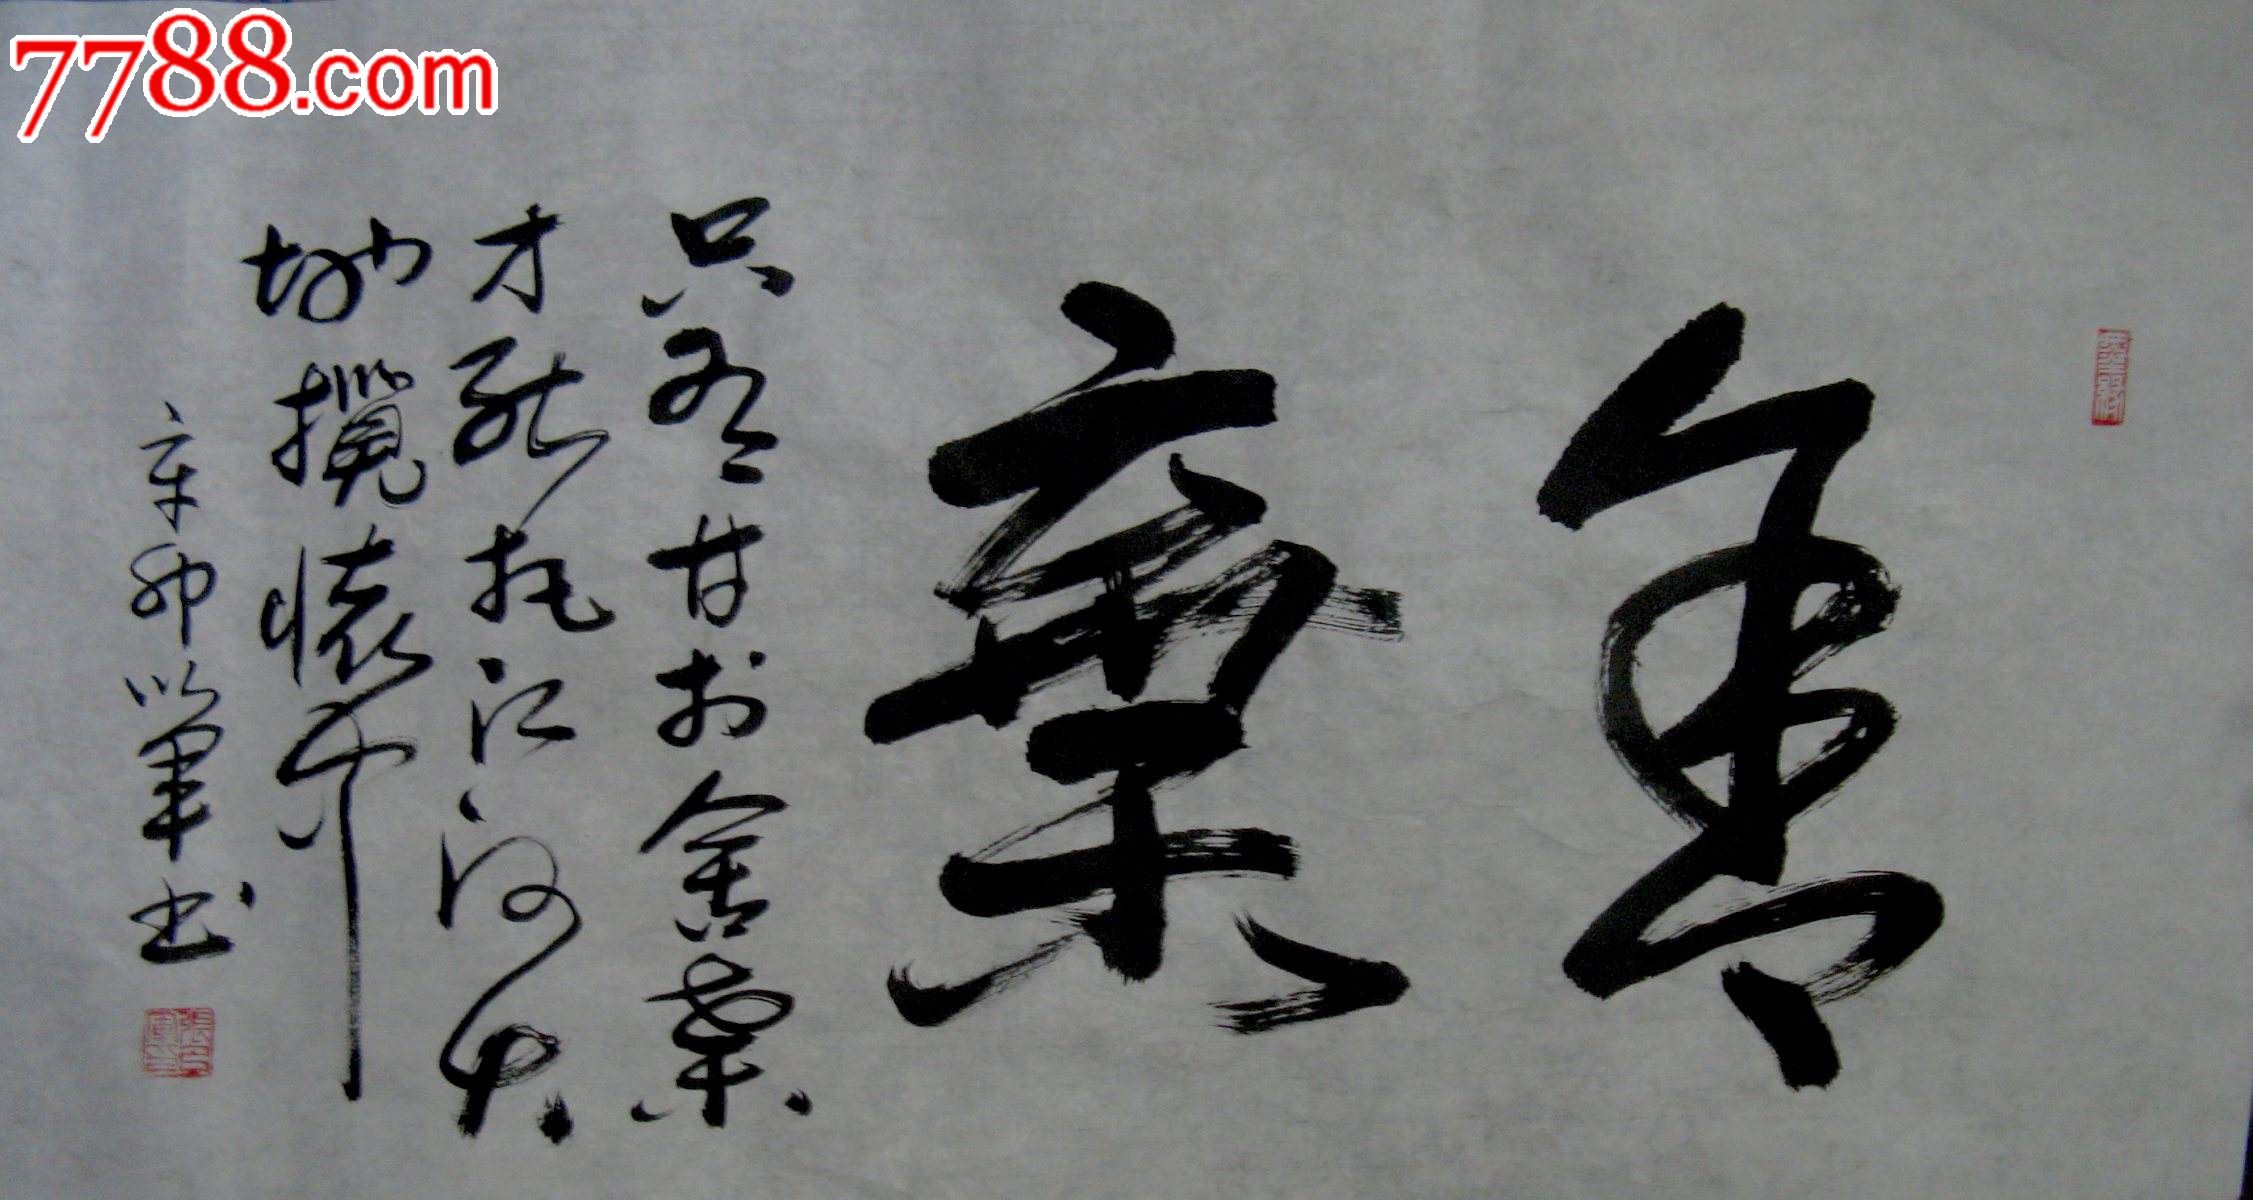 7788.com
舍棄
只有甘於舍棄
才能把江河大
地攬懷中
辛卯以軍書